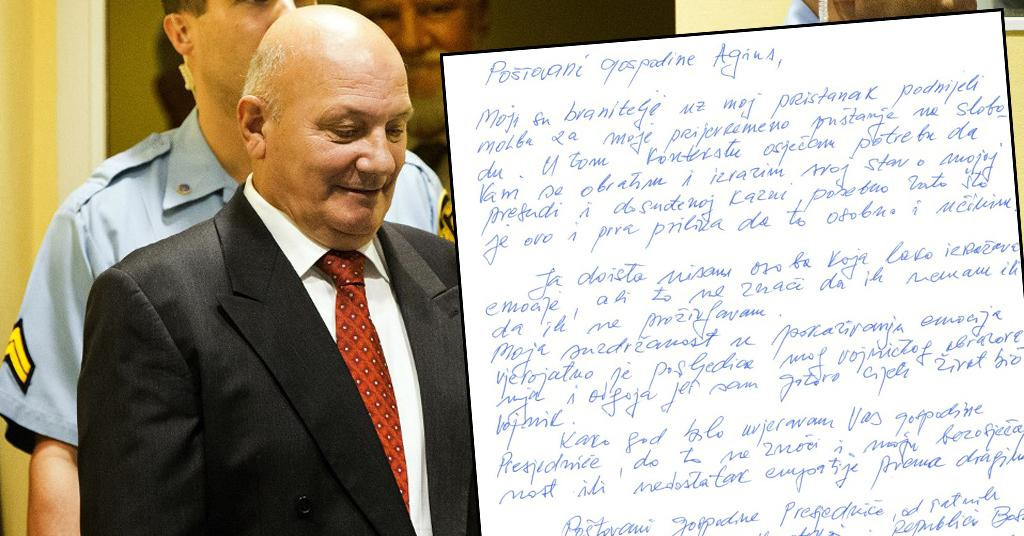 Poštovani gospodine Agius,
Moji su branitelji uz moj pristanak podnijeli
molba za moje prijevremeno puštanje na slobo-
du. U tom kontekstu osjećam potrebu da
Vam se obratim i izrazim svoj stav o mojoj
presudi i dosuđenoj kazni, posebno zato što
je ovo i prva prilika da to osobno i učinim.
Ja doista nisam osoba koja lako izražava
emocije, ali to ne znači da ih nemam ili
da ih ne proživljavam.
Moja suzdržanost u pokazivanju emocija
vjerojatno je posljedica mog vojničkog obrazova
nja i odgoja jer sam gotovo cijeli život bio
vojnik.
Kako god bilo uvjeravam Vas gospodine
Predsjedniče, da to ne znači i moju bezosjećaj
nost ili nedostatak empatije prema drugim
Poštovani gospodine Predsjedniče, od ratnih
Republici Bos